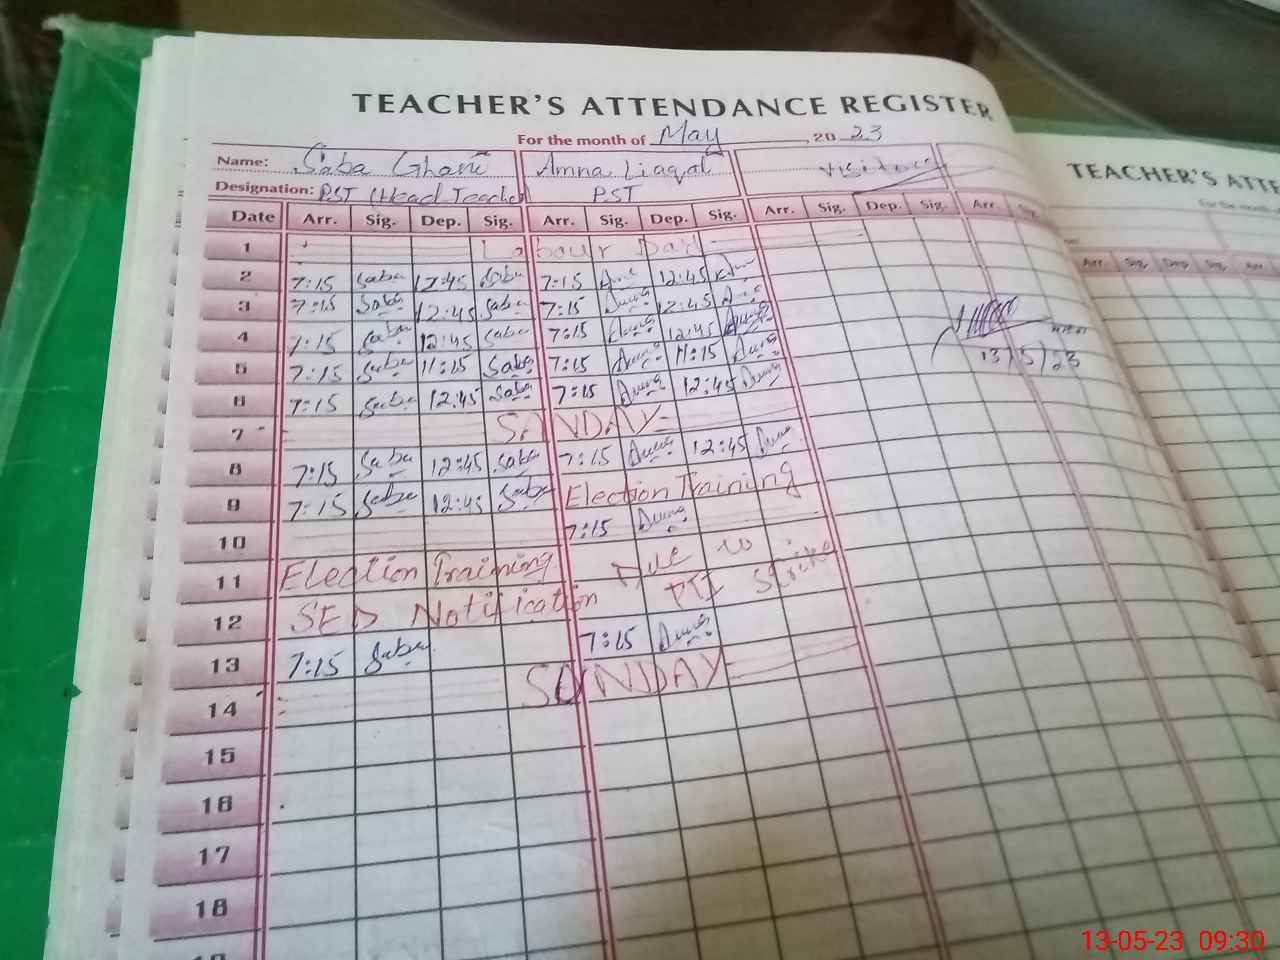 TEACHER'S ATTENDANCE REGISTER
For the month of May, 2023
Name: Saba Ghani Amna Liaqat Visitors
Designation: PST (Head Teacher) PST
Date Arr. Sig. Dep. Sig. Arr. Sig. Dep. Sig. Arr. Sig. Dep. Sig. Arr. Sig.
1 Labour Day
2 7:15 Saba 12:45 Saba 7:15 12:45
3 7:15 Saba 12:45 Saba 7:15 Amna 12:45
4 7:15 Saba 12:45 Saba 7:15 Amna 12:45 Amna
5 7:15 Saba 11:15 Saba 7:15 Amna 11:15 Amna
6 7:15 Saba 12:45 Saba 7:15 Amna 12:45 Amna
7 SANDAY
8 7:15 Saba 12:45 Saba 7:15 Amna 12:45 Amna
9 7:15 Saba 12:45 Saba Election Training
10 7:15 Amna
11 Election Training Due to
12 SED Notification PTI Strike
13 7:15 Saba 7:15 Amna
14 SUNDAY
15
16
17
18
13/5/23
TEACHER'S ATTE
For the month
Arr. Sig. Dep. Sig. Arr.
13-05-23 09:30